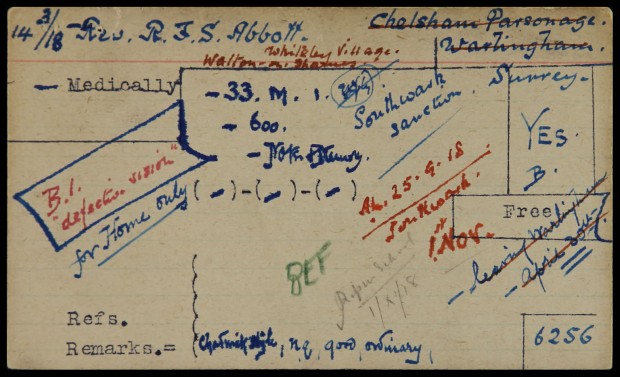 14 3/18 Rev. R. F. S. Abbott.
Chelsham Parsonage.
Warlingham.
Surrey.
Whiteley Village.
Walton-on-Thames
- Medically
- 33. M. 1.
- 600.
Southwark
sanction.
YES.
B.
B.1.
"defective vision"
for Home only
( - ) - ( - ) - ( - )
25.9.18
Southwark.
1 Nov.
Free
- leaving Warlingham
- April 30th -
BEF
1/X/18
Refs.
Remarks.= n.q, good, ordinary,
6256